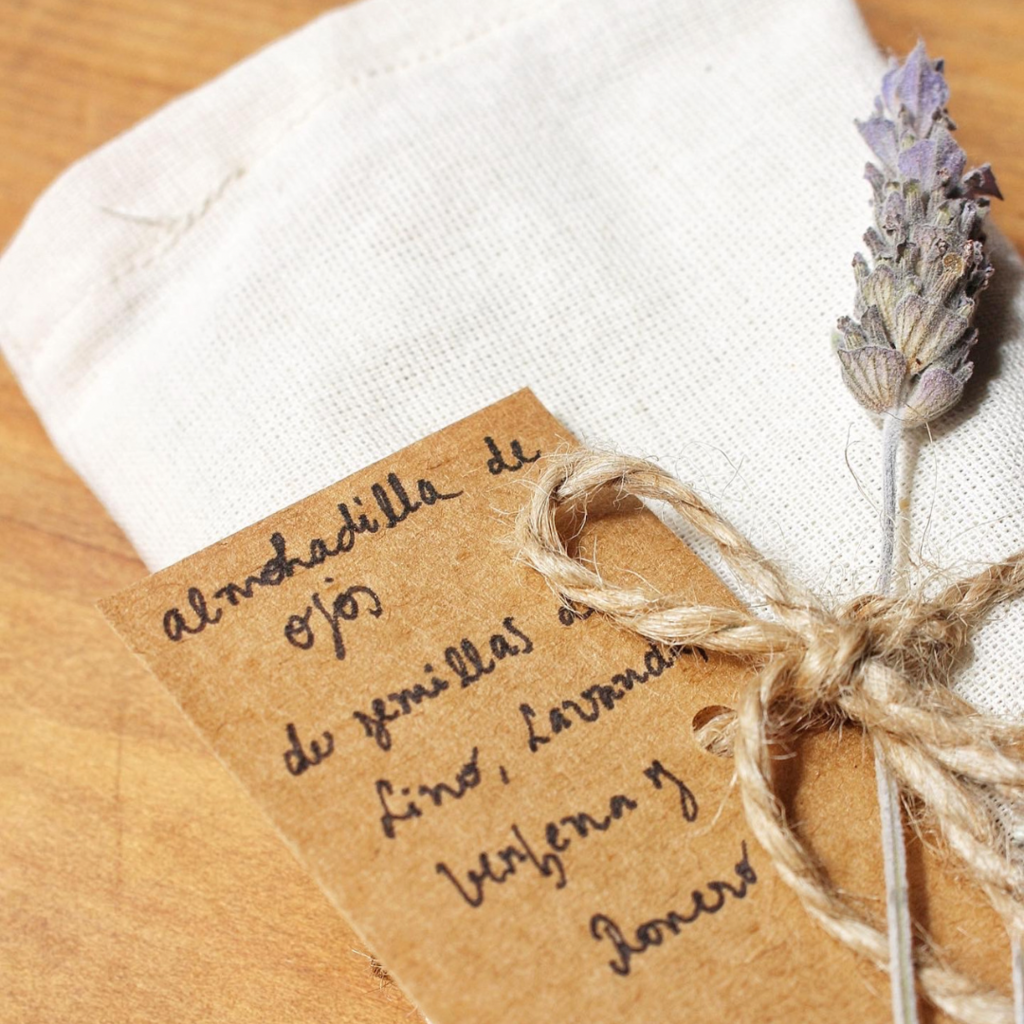 almohadilla de
ojos
de semillas de
Lino, Lavanda,
Verbena y
Romero